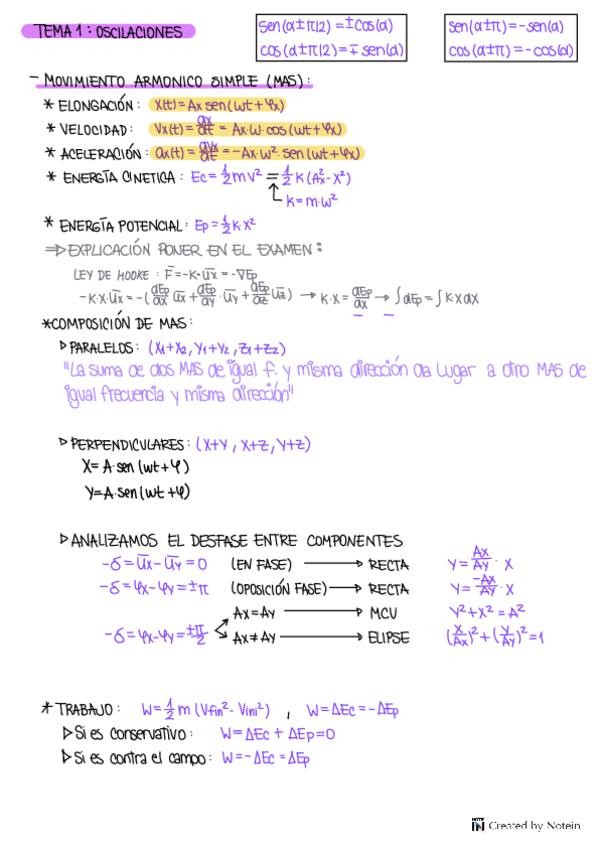 TEMA 1: OSCILACIONES
sen(α±π/2)=±cos(α)
cos(α±π/2)=∓sen(α)
sen(α±π)=-sen(α)
cos(α±π)=-cos(α)
- MOVIMIENTO ARMONICO SIMPLE (MAS):
* ELONGACIÓN: X(t)=Ax sen(wt+φx)
* VELOCIDAD: Vx(t)=dx/dt=Ax·w·cos(wt+φx)
* ACELERACIÓN: ax(t)=dvx/dt=-Ax·w²·sen(wt+φx)
* ENERGÍA CINETICA: Ec=1/2 m v²=1/2 K(Ax²-X²)
K=m·w²
* ENERGÍA POTENCIAL: Ep=1/2 K·X²
⇒ EXPLICACIÓN PONER EN EL EXAMEN:
LEY DE HOOKE: F=-K·ux=-∇Ep
-K·X·ux=-(dEp/dx ux+dEp/dy·uy+dEp/dz uz) → K·X=dEp/dx → ∫dEp=∫K·X dx
*COMPOSICIÓN DE MAS:
▷ PARALELOS: (X1+X2, Y1+Y2, Z1+Z2)
"La suma de dos MAS de igual f. y misma dirección da lugar a otro MAS de
igual frecuencia y misma dirección"
▷ PERPENDICULARES: (X+Y, X+Z, Y+Z)
X=A·sen(wt+φ)
Y=A·sen(wt+φ)
▷ ANALIZAMOS EL DESFASE ENTRE COMPONENTES
-δ=ux-uy=0 (EN FASE) → RECTA Y=Ax/Ay·X
-δ=φx-φy=±π (OPOSICIÓN FASE) → RECTA Y=-Ax/Ay·X
Ax=Ay → MCU Y²+X²=A²
-δ=φx-φy=±π/2 Ax≠Ay → ELIPSE (X/Ax)²+(Y/Ay)²=1
* TRABAJO: W=1/2 m(Vfin²-Vini²), W=ΔEc=-ΔEp
▷ Si es conservativo: W=ΔEc+ΔEp=0
▷ Si es contra el campo: W=-ΔEc=ΔEp
NOTE IN Created by Notein